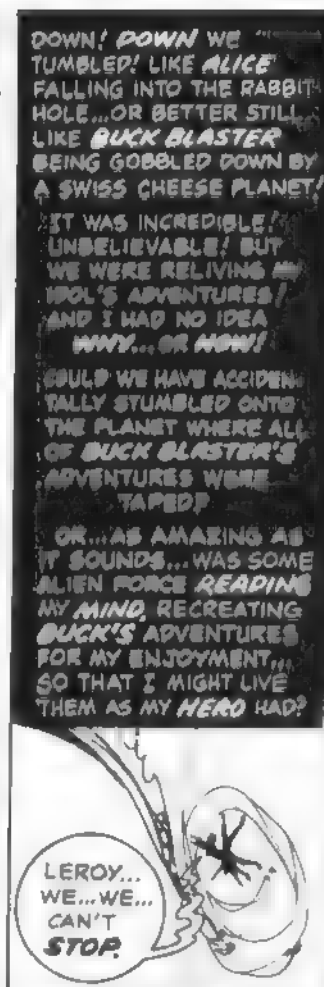 DOWN! DOWN WE
TUMBLED! LIKE ALICE
FALLING INTO THE RABBIT
HOLE...OR BETTER STILL
LIKE BUCK BLASTER
BEING GOBBLED DOWN BY
A SWISS CHEESE PLANET!
IT WAS INCREDIBLE!
UNBELIEVABLE! BUT
WE WERE RELIVING MY
IDOL'S ADVENTURES!
AND I HAD NO IDEA
WHY...OR HOW!
COULD WE HAVE ACCIDEN-
TALLY STUMBLED ONTO
THE PLANET WHERE ALL
OF BUCK BLASTER'S
ADVENTURES WERE
TAPED?
OR...AS AMAZING AS
IT SOUNDS...WAS SOME
ALIEN FORCE READING
MY MIND, RECREATING
BUCK'S ADVENTURES
FOR MY ENJOYMENT...
SO THAT I MIGHT LIVE
THEM AS MY HERO HAD?
LEROY...
WE...WE...
CAN'T
STOP.